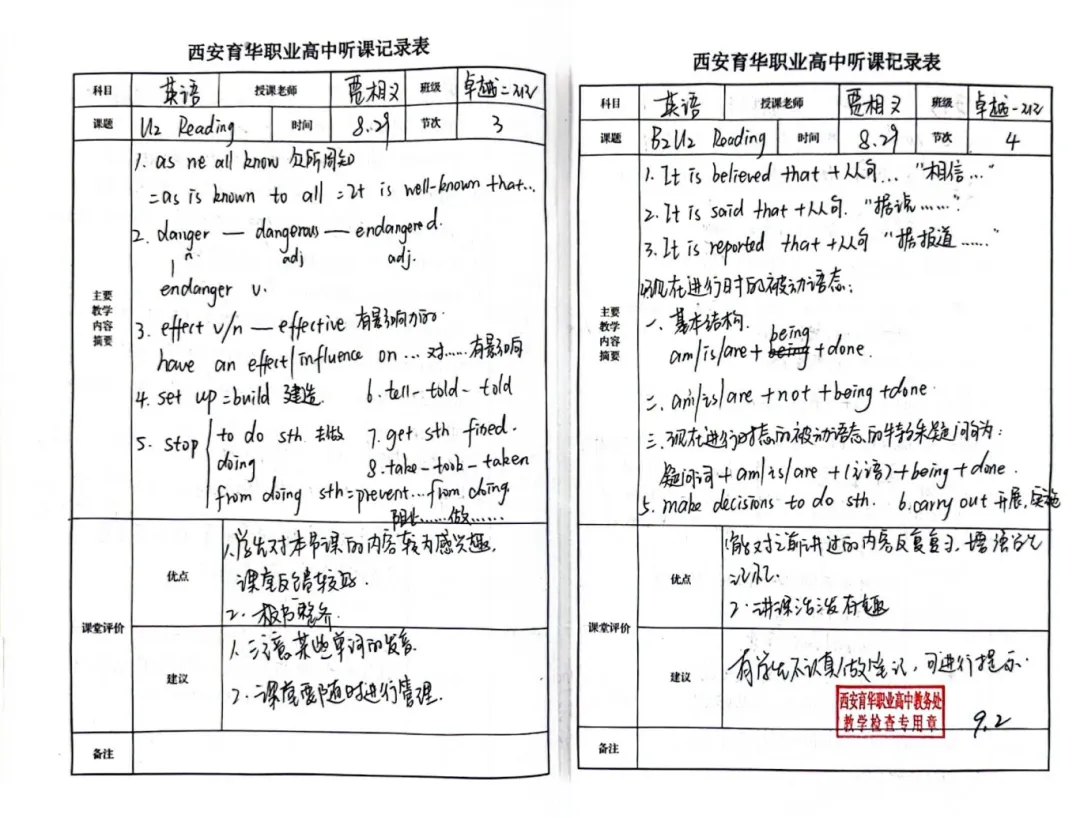 西安育华职业高中听课记录表
科目 英语 授课老师 贾相义 班级 卓越二
课题 U2 Reading 时间 8.29 节次 3
主要教学内容摘要
1. as we all know 众所周知
=as is known to all =It is well-known that...
2. danger — dangerous — endangered.
n. adj adj.
endanger v.
3. effect v/n — effective 有影响力的.
have an effect/influence on ... 对......有影响
4. set up =build 建造. 6. tell-told-told
5. stop to do sth 去做 7. get sth fixed.
doing 8. take-took-taken
from doing sth =prevent...from doing
阻止......做......
课堂评价
优点
1. 学生对本节课的内容较为感兴趣,
课堂反馈较好.
2. 板书整齐.
建议
1. 注意某些单词的发音.
2. 课堂要随时进行管理.
备注
西安育华职业高中听课记录表
科目 英语 授课老师 贾相义 班级 卓越一
课题 B2U2 Reading 时间 8.29 节次 4
主要教学内容摘要
1. It is believed that +从句... “相信...”
2. It is said that +从句. “据说......”
3. It is reported that +从句 “据报道......”
现在进行时的被动语态:
一、基本结构.
being
am/is/are + being + done.
二、am/is/are +not +being +done.
三、现在进行时态的被动语态的特殊疑问句为:
疑问词 + am/is/are +(主语)+being +done.
5. make decisions to do sth. 6. carry out 开展,实施
课堂评价
优点
1.能对之前讲过的内容反复复习,增强学生
记忆.
2. 讲课活泼有趣
建议
有学生不认真做笔记,可进行提示.
西安育华职业高中教务处
教学检查专用章
9.2
备注